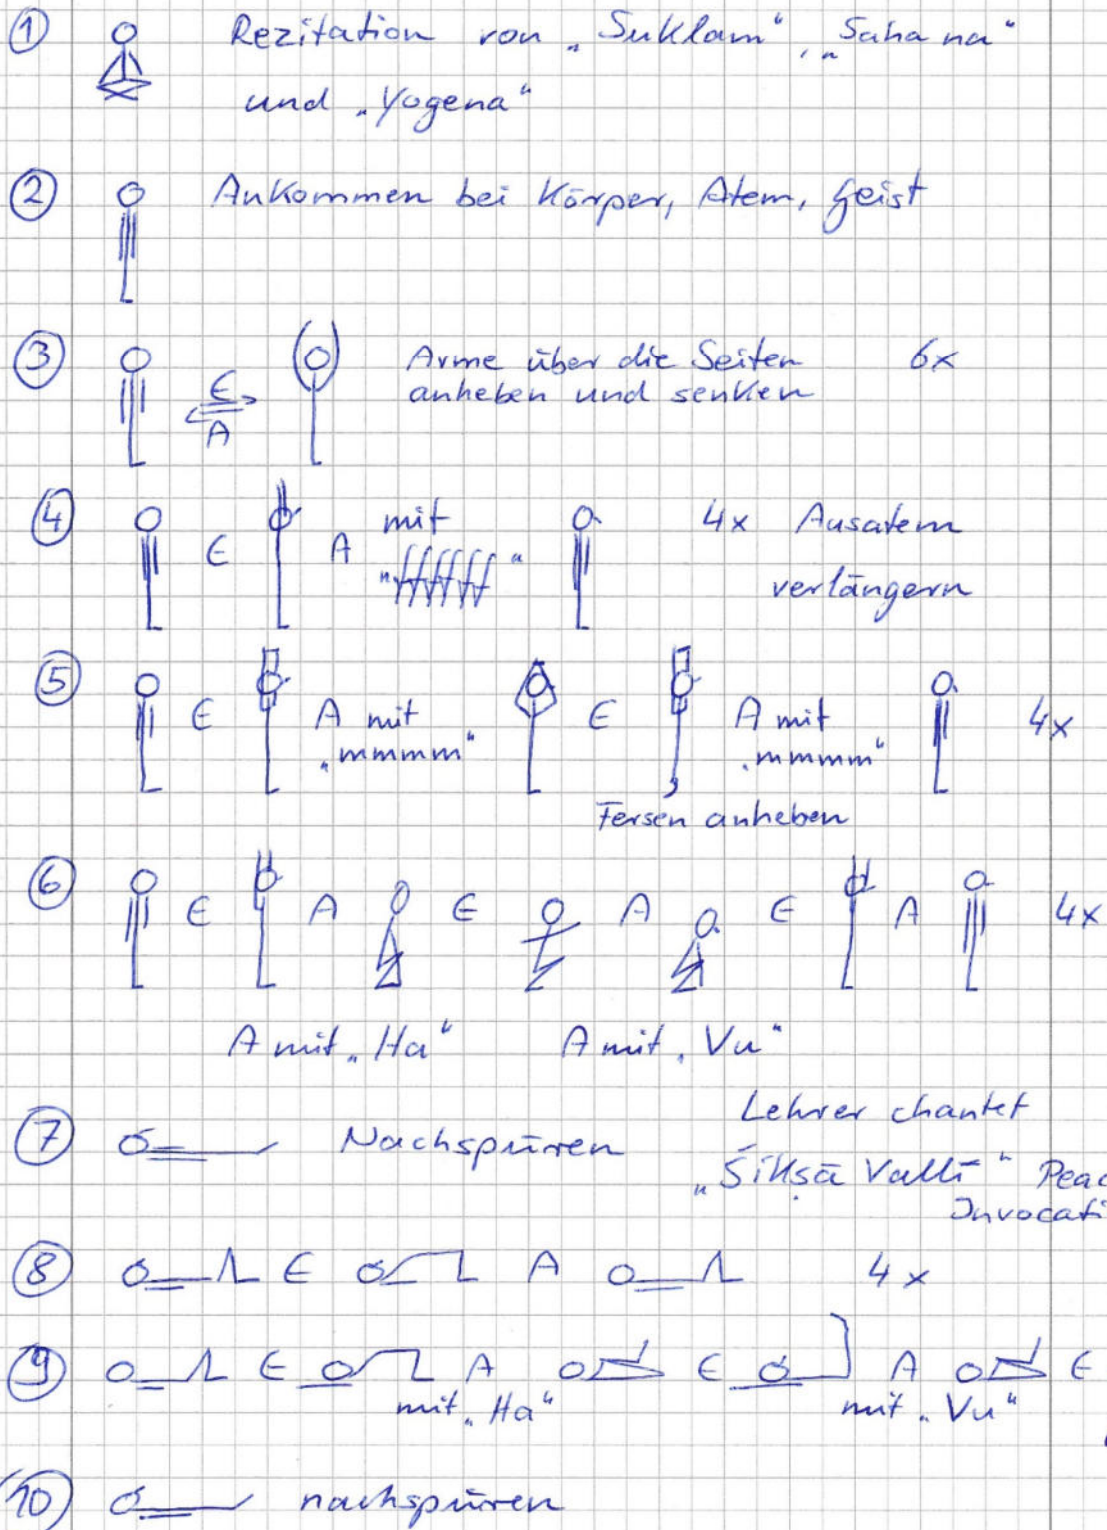 ① Rezitation von „Suklam“, „Saha na“
und „Yogena“
② Ankommen bei Körper, Atem, Geist
③ E A Arme über die Seiten 6x
anheben und senken
④ E A mit „ffffff“ 4x Ausatem
verlängern
⑤ E A mit E A mit 4x
„mmmm“ „mmmm“
Fersen anheben
⑥ E A E A E A 4x
A mit „Ha“ A mit „Vu“
⑦ Nachspüren Lehrer chantet
„Śikṣā Vallī“ Peac
Invocati
⑧ E A 4x
⑨ E A E A E
mit „Ha“ mit „Vu“
⑩ nachspüren